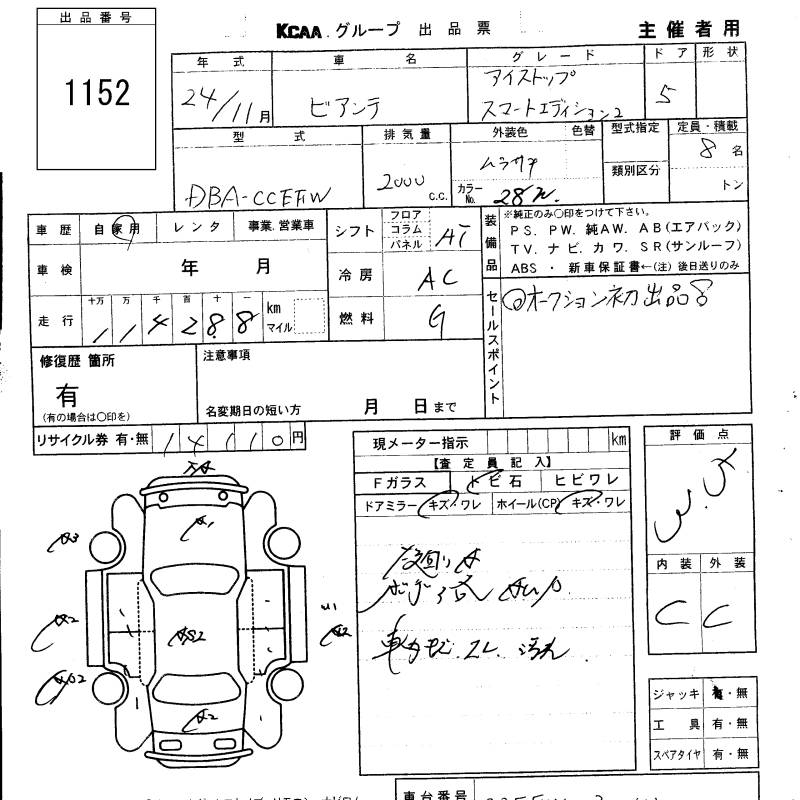 出品番号
1152
KCAA グループ 出品票
主催者用
年式 車名 グレード ドア 形状
24/11月 ビアンテ アイストップ 5
スマートエディション2
型式 排気量 外装色 色替 型式指定 定員・積載
DBA-CCEFW 2000 c.c. ムラサキ 8名
カラーNo. 28W 類別区分 トン
車歴 自家用 レンタ 事業.営業車
シフト フロア コラム パネル AT
装備品
※純正のみ〇印をつけて下さい。
PS. PW. 純AW. AB(エアバック)
TV. ナビ. カワ. SR(サンルーフ)
ABS ・ 新車保証書←(注)後日送りのみ
車検 年 月
冷房 AC
走行 十万 万 千 百 十 一
114288 km マイル
燃料 G
セールスポイント
◎オークション初出品
修復歴 箇所
有
(有の場合は〇印を)
注意事項
名変期日の短い方 月 日まで
リサイクル券 有・無 14110円
現メーター指示 km
【査定員記入】
Fガラス トビ石 ヒビワレ
ドアミラー キズ・ワレ ホイール(CP) キズ・ワレ
評価点
内装 外装
C C
A1
A3
A2
U1
A2
ジャッキ 有・無
工具 有・無
スペアタイヤ 有・無
車台番号